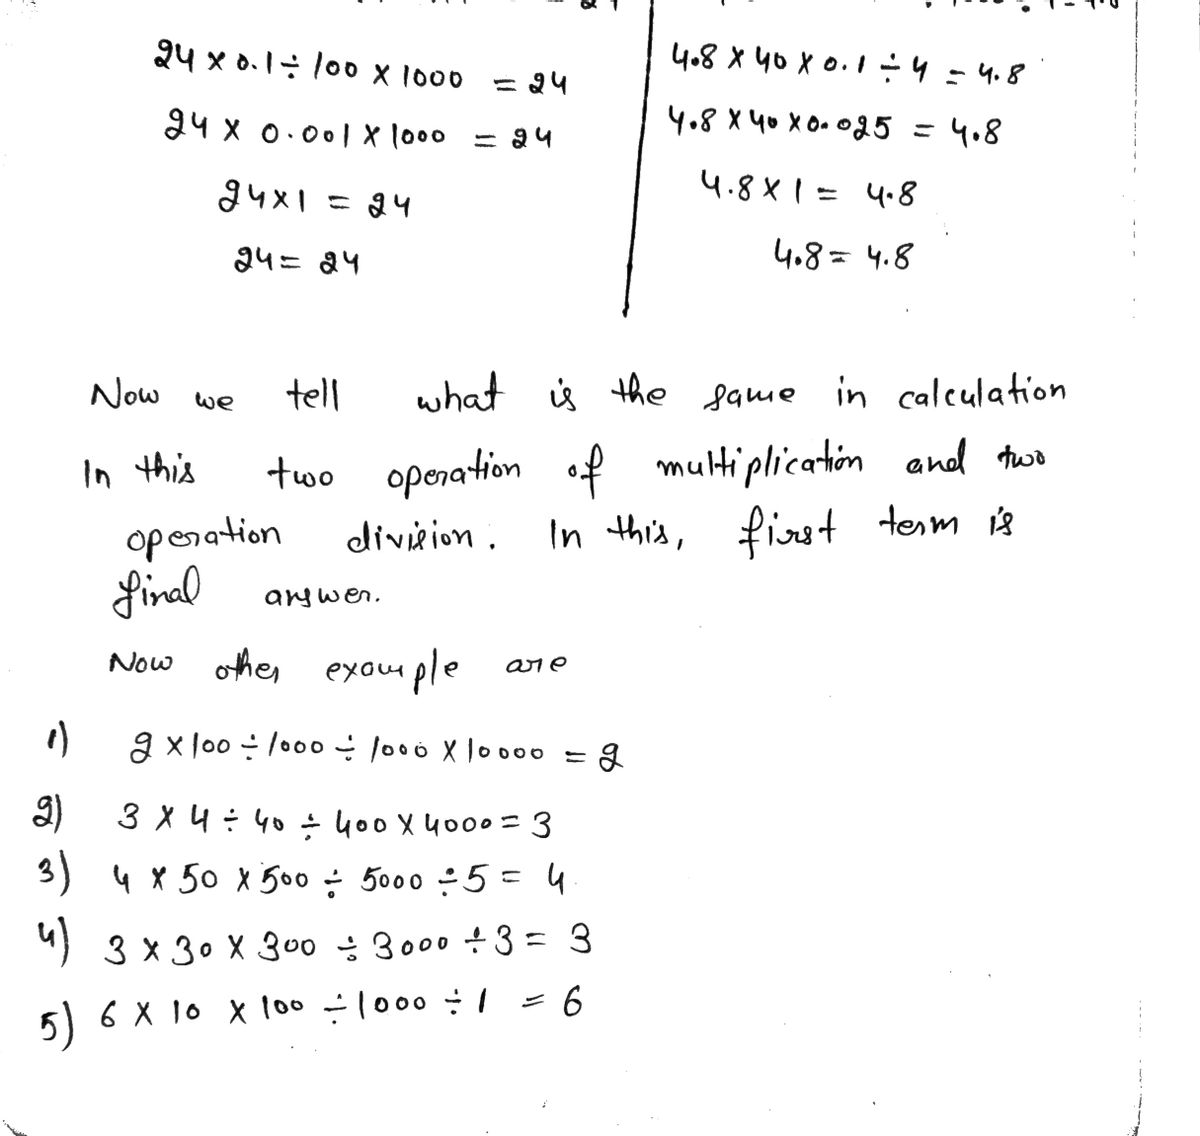 24 × 0.1 ÷ 100 × 1000 = 24
24 × 0.001 × 1000 = 24
24×1 = 24
24 = 24
4.8 × 40 × 0.1 ÷ 4 = 4.8
4.8 × 40 × 0.025 = 4.8
4.8 × 1 = 4.8
4.8 = 4.8
Now we tell what is the same in calculation
In this two operation of multiplication and two
operation division. In this, first term is
final answer.
Now other example are
1) 2 × 100 ÷ 1000 ÷ 1000 × 10000 = 2
2) 3 × 4 ÷ 40 ÷ 400 × 4000 = 3
3) 4 × 50 × 500 ÷ 5000 ÷ 5 = 4
4) 3 × 30 × 300 ÷ 3000 ÷ 3 = 3
5) 6 × 10 × 100 ÷ 1000 ÷ 1 = 6